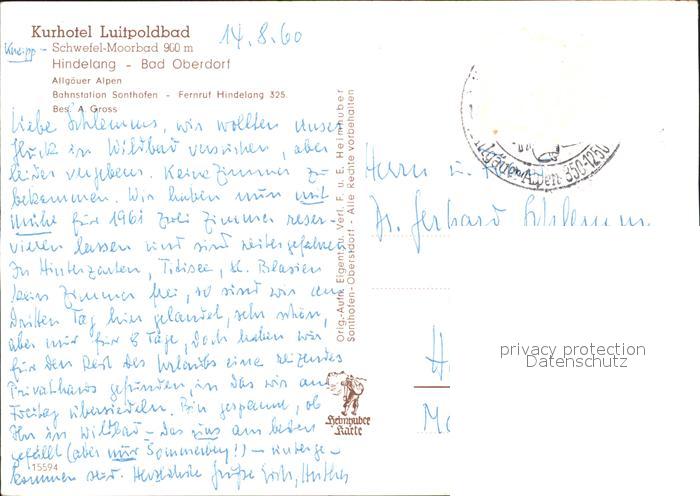 Kurhotel Luitpoldbad
14.8.60
Kneipp - Schwefel-Moorbad 960 m
Hindelang - Bad Oberdorf
Allgäuer Alpen
Bahnstation Sonthofen - Fernruf Hindelang 325.
Bes. A. Gross
Liebe Schlemms, wir wollten unser
Glück in Wildbad versuchen, aber
leider vergebens. Keine Zimmer zu
bekommen. Wir haben nun mit
Mühe für 1961 zwei Zimmer reser-
vieren lassen und sind weitergefahren.
In Hinterzarten, Titisee, St. Blasien
kein Zimmer frei, so sind wir am
dritten Tag hier gelandet, sehr schön,
aber nur für 8 Tage, doch haben wir
für den Rest des Urlaubs eine reizendes
Privathaus gefunden, in das wir am
Freitag übersiedeln. Bin gespannt, ob
Ihr in Wildbad - das uns am besten
gefällt (aber nur Sommerberg!!) - unterge-
kommen seid. Herzliche Grüße
15594
Orig.-Aufn. Eigent. u. Verl. F. u. E. Heimhuber
Sonthofen-Oberstdorf - Alle Rechte vorbehalten
Heimhuber
Karte
Allgäuer Alpen 350-1250
Herrn u.
Dr. Gerhard Schlemm
privacy protection
Datenschutz